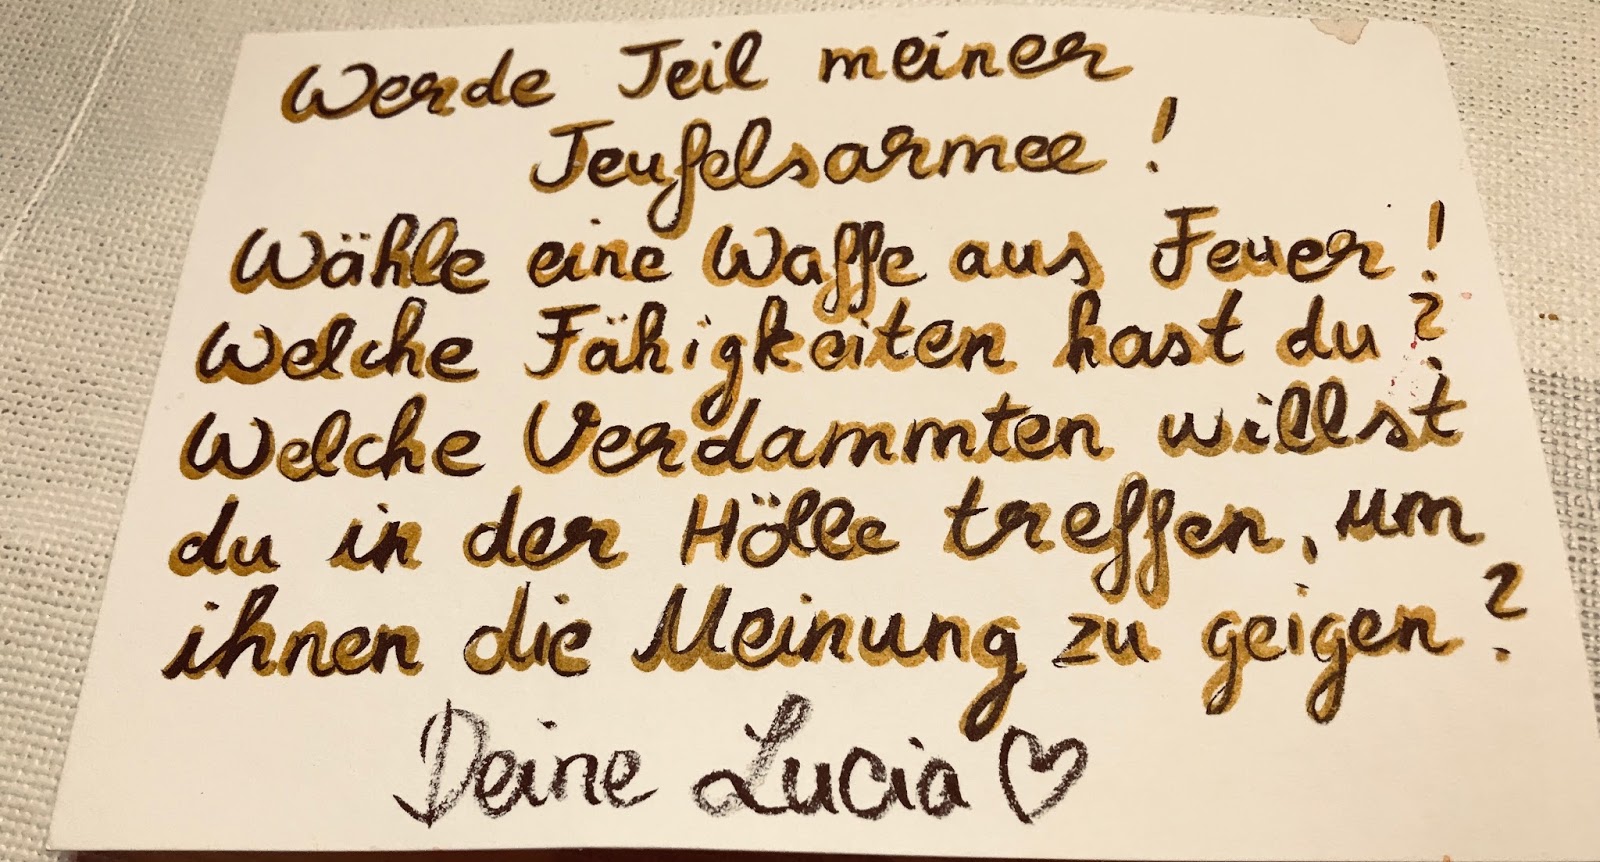 Werde Teil meiner
Teufelsarmee!
Wähle eine Waffe aus Feuer!
Welche Fähigkeiten hast du?
Welche Verdammten willst
du in der Hölle treffen, um
ihnen die Meinung zu geigen?
Deine Lucia ♡